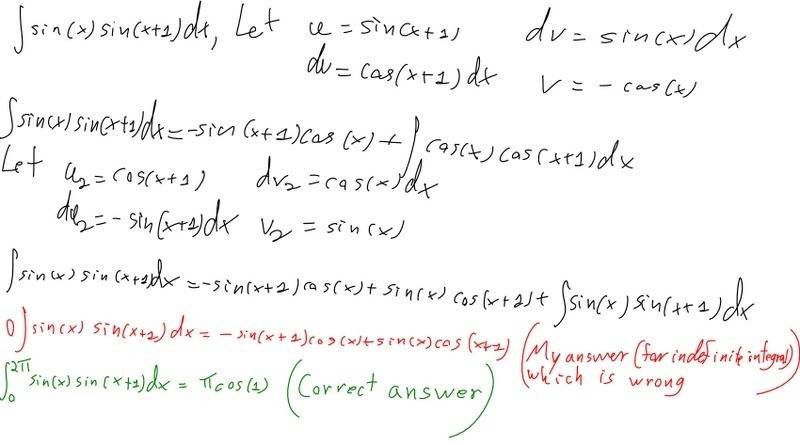 ∫sin(x) sin(x+1)dx, Let u = sin(x+1) dv = sin(x) dx
du = cos(x+1) dx v = - cos(x)
∫sin(x) sin(x+1)dx = -sin(x+1)cos(x) + ∫cos(x) cos(x+1)dx
Let u₂ = cos(x+1) dv₂ = cos(x) dx
du₂ = - sin(x+1)dx v₂ = sin(x)
∫sin(x) sin(x+1)dx = -sin(x+1) cos(x) + sin(x) cos(x+1) + ∫sin(x) sin(x+1) dx
0∫sin(x) sin(x+1) dx = - sin(x+1)cos(x) + sin(x) cos(x+1) (My answer (for indefinite integral) which is wrong)
∫₀^2π sin(x) sin(x+1)dx = π cos(1) (Correct answer)